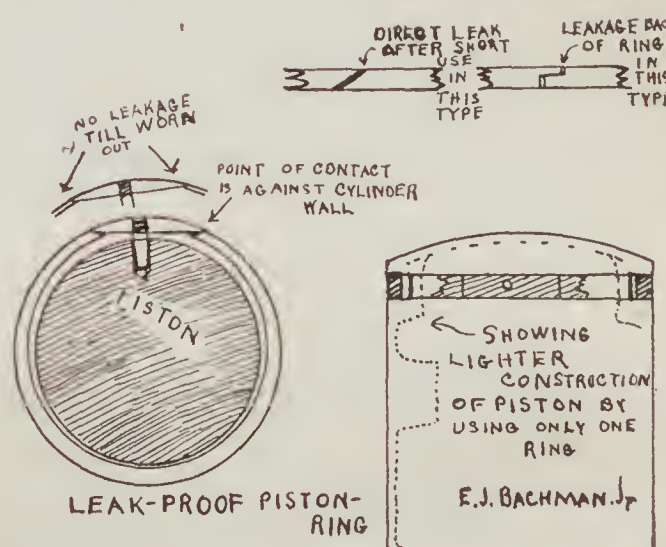 DIRECT LEAK
AFTER SHORT
USE
IN
THIS
TYPE
LEAKAGE BAC
OF RING
IN
THIS
TYPE
NO LEAKAGE
TILL WORN
OUT
POINT OF CONTACT
IS AGAINST CYLINDER
WALL
PISTON
SHOWING
LIGHTER
CONSTRUCTION
OF PISTON BY
USING ONLY ONE
RING
E.J. BACHMAN. Jr
LEAK-PROOF PISTON-
RING